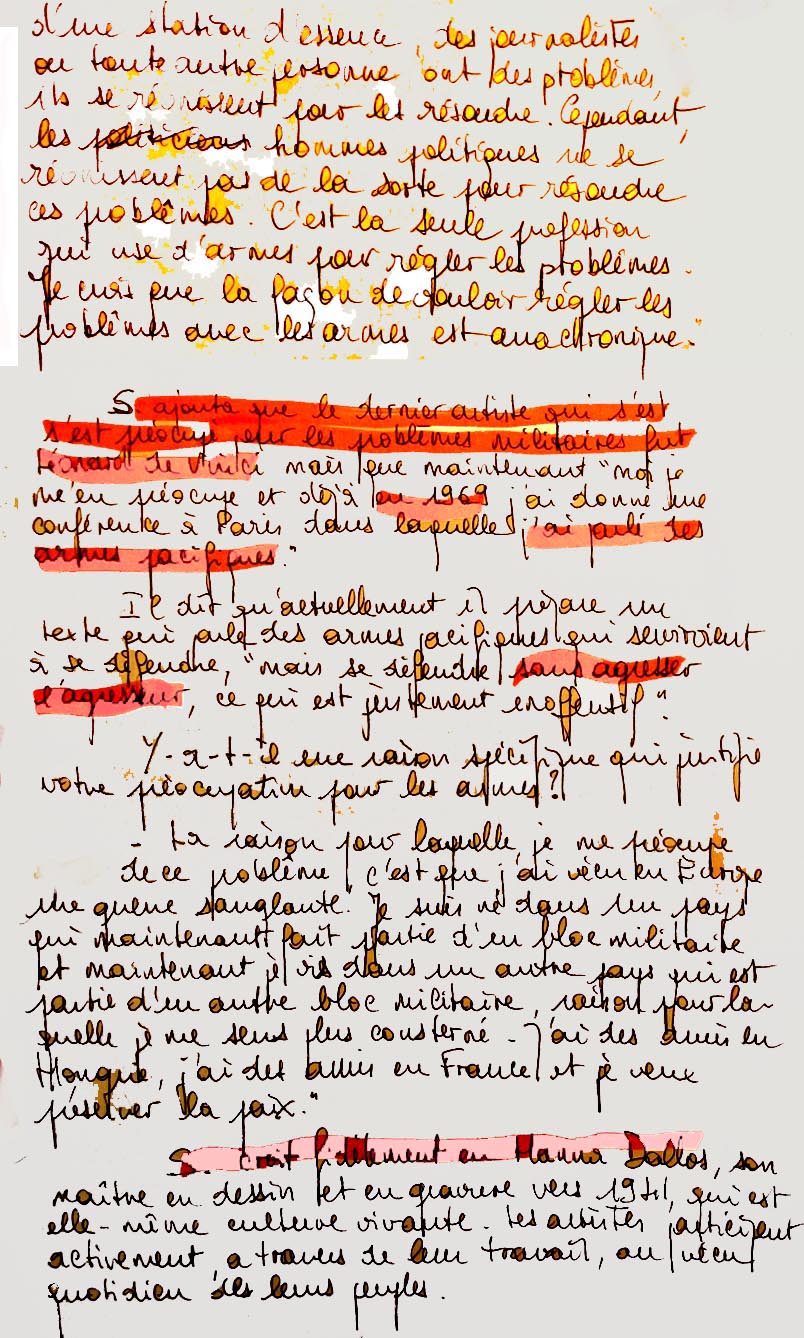 d'une station d'essence, des journalistes
ou toute autre personne ont des problèmes,
ils se réunissent pour les résoudre. Cependant,
les politiciens hommes politiques ne se
réunissent pas de la sorte pour résoudre
ces problèmes. C'est la seule profession
qui use d'armes pour régler les problèmes.
Je crois que la façon de vouloir régler les
problèmes avec les armes est anachronique."
S. ajouta que le dernier artiste qui s'est
s'est préocupé pour les problèmes militaires fut
Léonard de Vinci mais que maintenant "moi je
m'en préocupe et déjà en 1969 j'ai donné une
conférence à Paris dans laquelle j'ai parlé des
armes pacifiques."
Il dit qu'actuellement il prépare un
texte qui parle des armes pacifiques qui serviroient
à se défendre, "mais se défendre sans agresser
l'agresseur, ce qui est justement inoffensif".
Y-a-t-il une raison spécifique qui justifie
votre préocupation pour les armes?
- La raison pour laquelle je me préocupe
de ce problème c'est que j'ai vécu en Europe
une guerre sanglante. Je suis né dans un pays
qui maintenant fait partie d'un bloc militaire
et maintenant je vis dans un autre pays qui est
partie d'un autre bloc militaire, raison pour la-
quelle je me sens plus consterné - J'ai des amis en
Hongrie, j'ai des amis en France et je veux
préserver la paix."
S. croit fidèlement en Hanna Dallos, son
maître en dessin et en gravure vers 1941, qui est
elle-même culture vivante. Les artistes participent
activement, a travers de leur travail, au vécu
quotidien des leurs peuples.